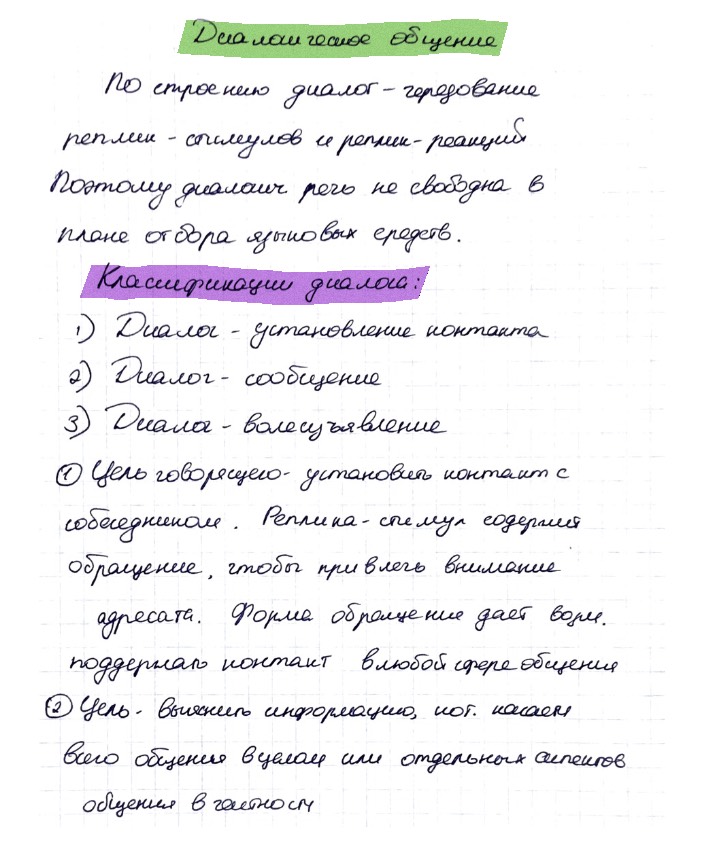 Диалогическое общение
По строению диалог - чередование
реплик - стимулов и реплик - реакций
Поэтому диалогич речь не свободна в
плане отбора языковых средств.
Классификации диалога:
1) Диалог - установление контакта
2) Диалог - сообщение
3) Диалог - волеизъявление
① Цель говорящего - установить контакт с
собеседником. Реплика - стимул содержит
обращение, чтобы привлечь внимание
адресата. Форма обращение дает возм.
поддержать контакт в любой сфере общения
② Цель - выяснить информацию, кот. касаем
всего общения в целом или отдельных аспектов
общения в частности